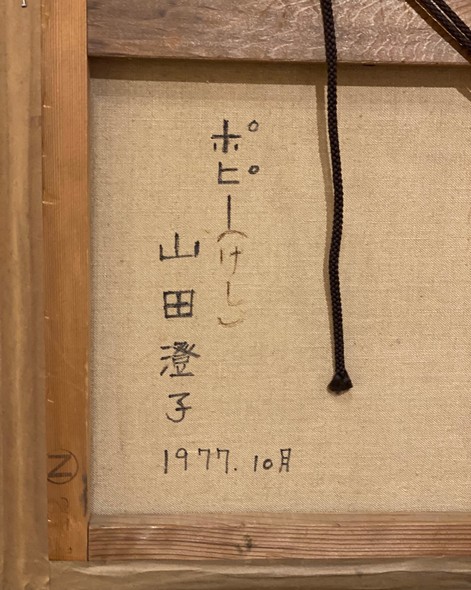 ポピー(けし)
山田澄子
1977.10月
N